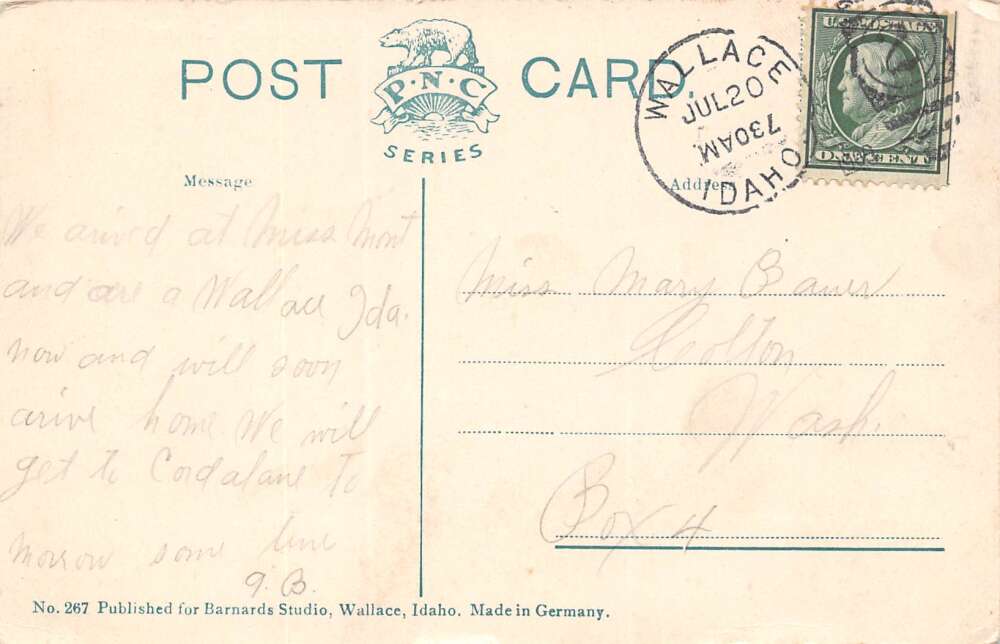 POST CARD.
P·N·C
SERIES
WALLACE
JUL 20
730 AM
IDAHO
U.S. POSTAGE
ONE CENT
Message
Address
We arived at Miss Mont
and are a Wallace Ida.
now and will soon
arive home We will
get to Cordalane To
morrow some time
G. B.
Miss Mary Bauer
Colton
Wash.
Box 4
No. 267 Published for Barnards Studio, Wallace, Idaho. Made in Germany.